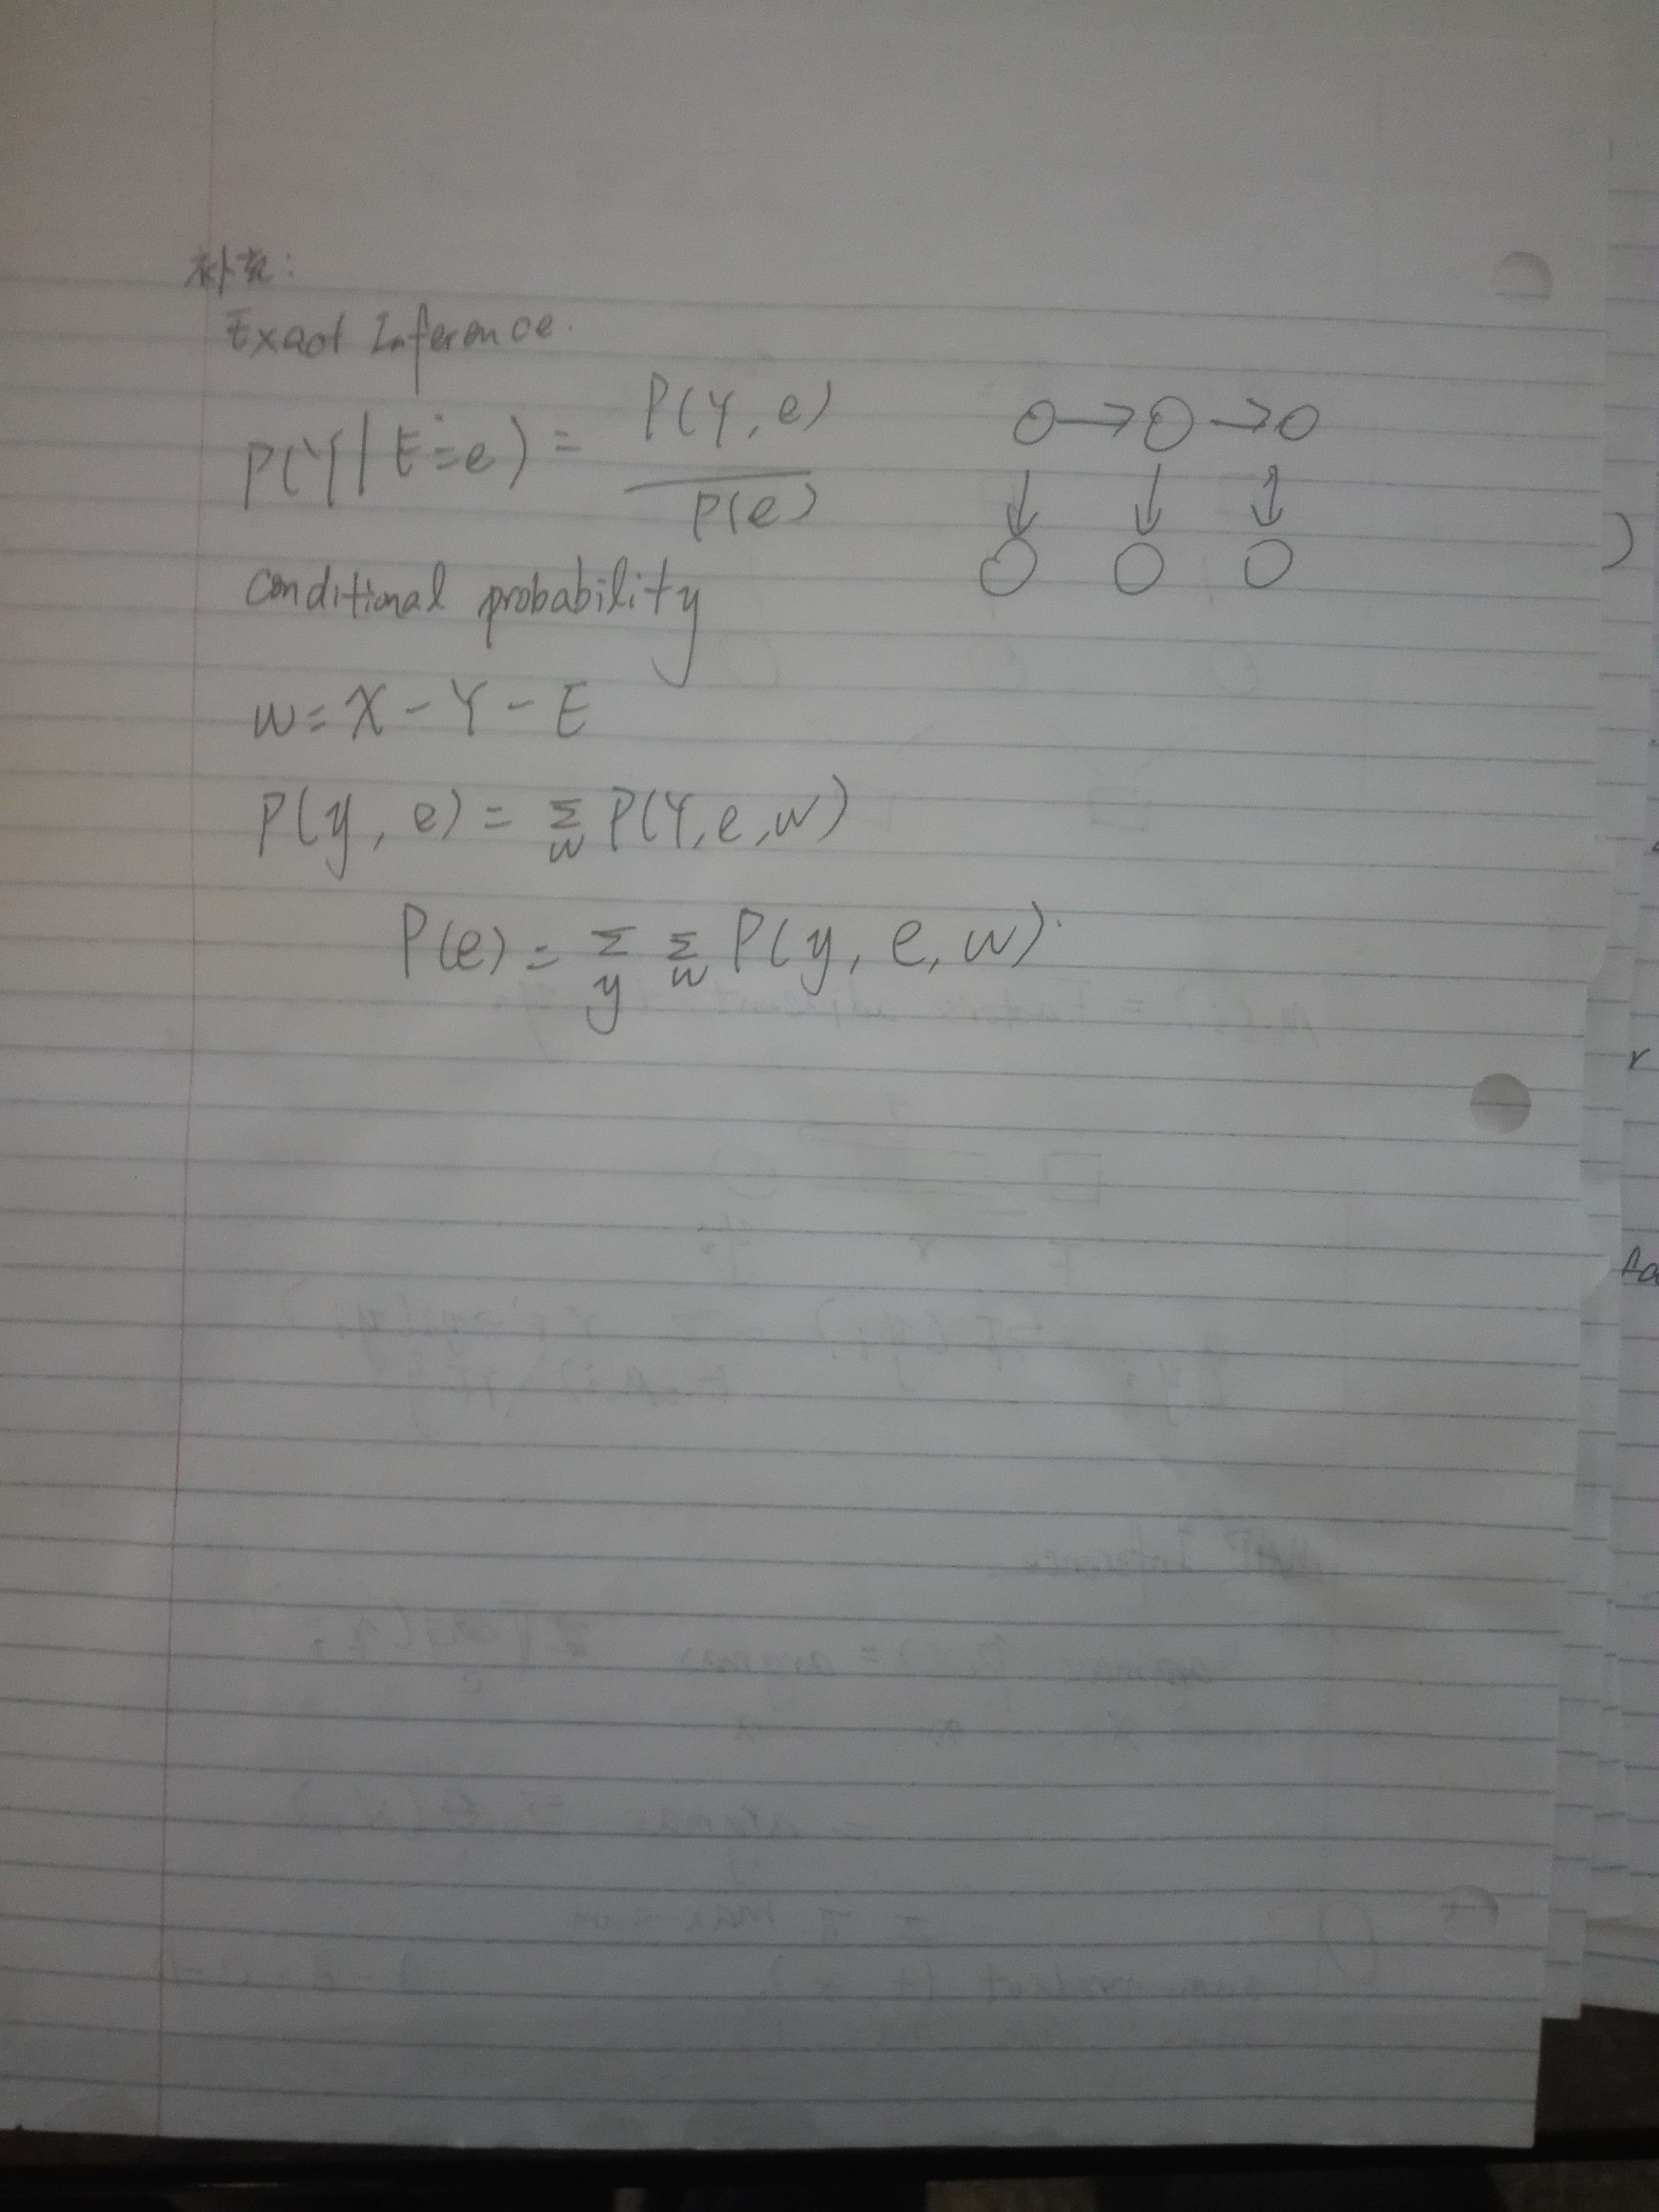 补充:
Exact Inference.
P(Y|E=e) = P(Y,e) / P(e)
Conditional probability
W = X - Y - E
P(y, e) = Σ_w P(Y,e,w)
P(e) = Σ_y Σ_w P(y, e, w).